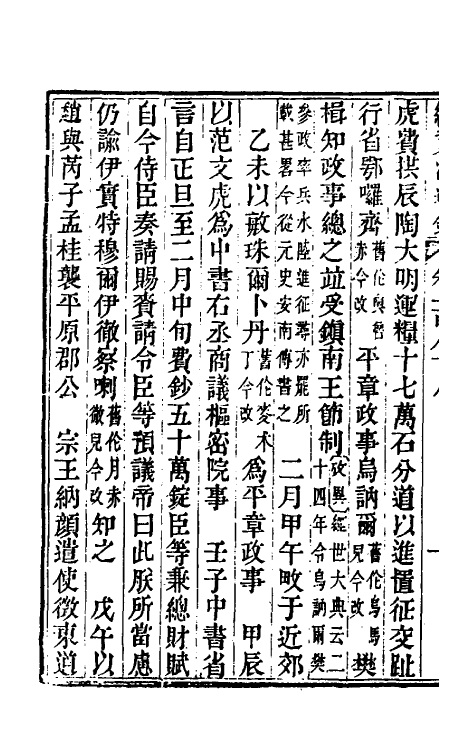 虎費拱辰陶大明運糧十七萬石分道以進置征交趾
行省鄂囉齊舊作奧魯赤今改平章政事烏訥爾舊作烏馬兒今改樊
楫知政事總之並受鎭南王節制攷異經世大典云二十四年令烏訥爾樊
參政率兵水陸進征尋亦罷所載甚畧今從元史安南傳書之二月甲午畋于近郊
乙未以敏珠爾卜丹舊作麥朮丁今改爲平章政事 甲辰
以范文虎爲中書右丞商議樞密院事 壬子中書省
言自正旦至二月中旬費鈔五十萬錠臣等兼總財賦
自今侍臣奏請賜賚請令臣等預議帝曰此朕所當慮
仍諭伊實特穆爾伊徹察喇舊作月赤徹兒今改知之 戊午以
趙與芮子孟桂襲平原郡公 宗王納顏遣使徵東道